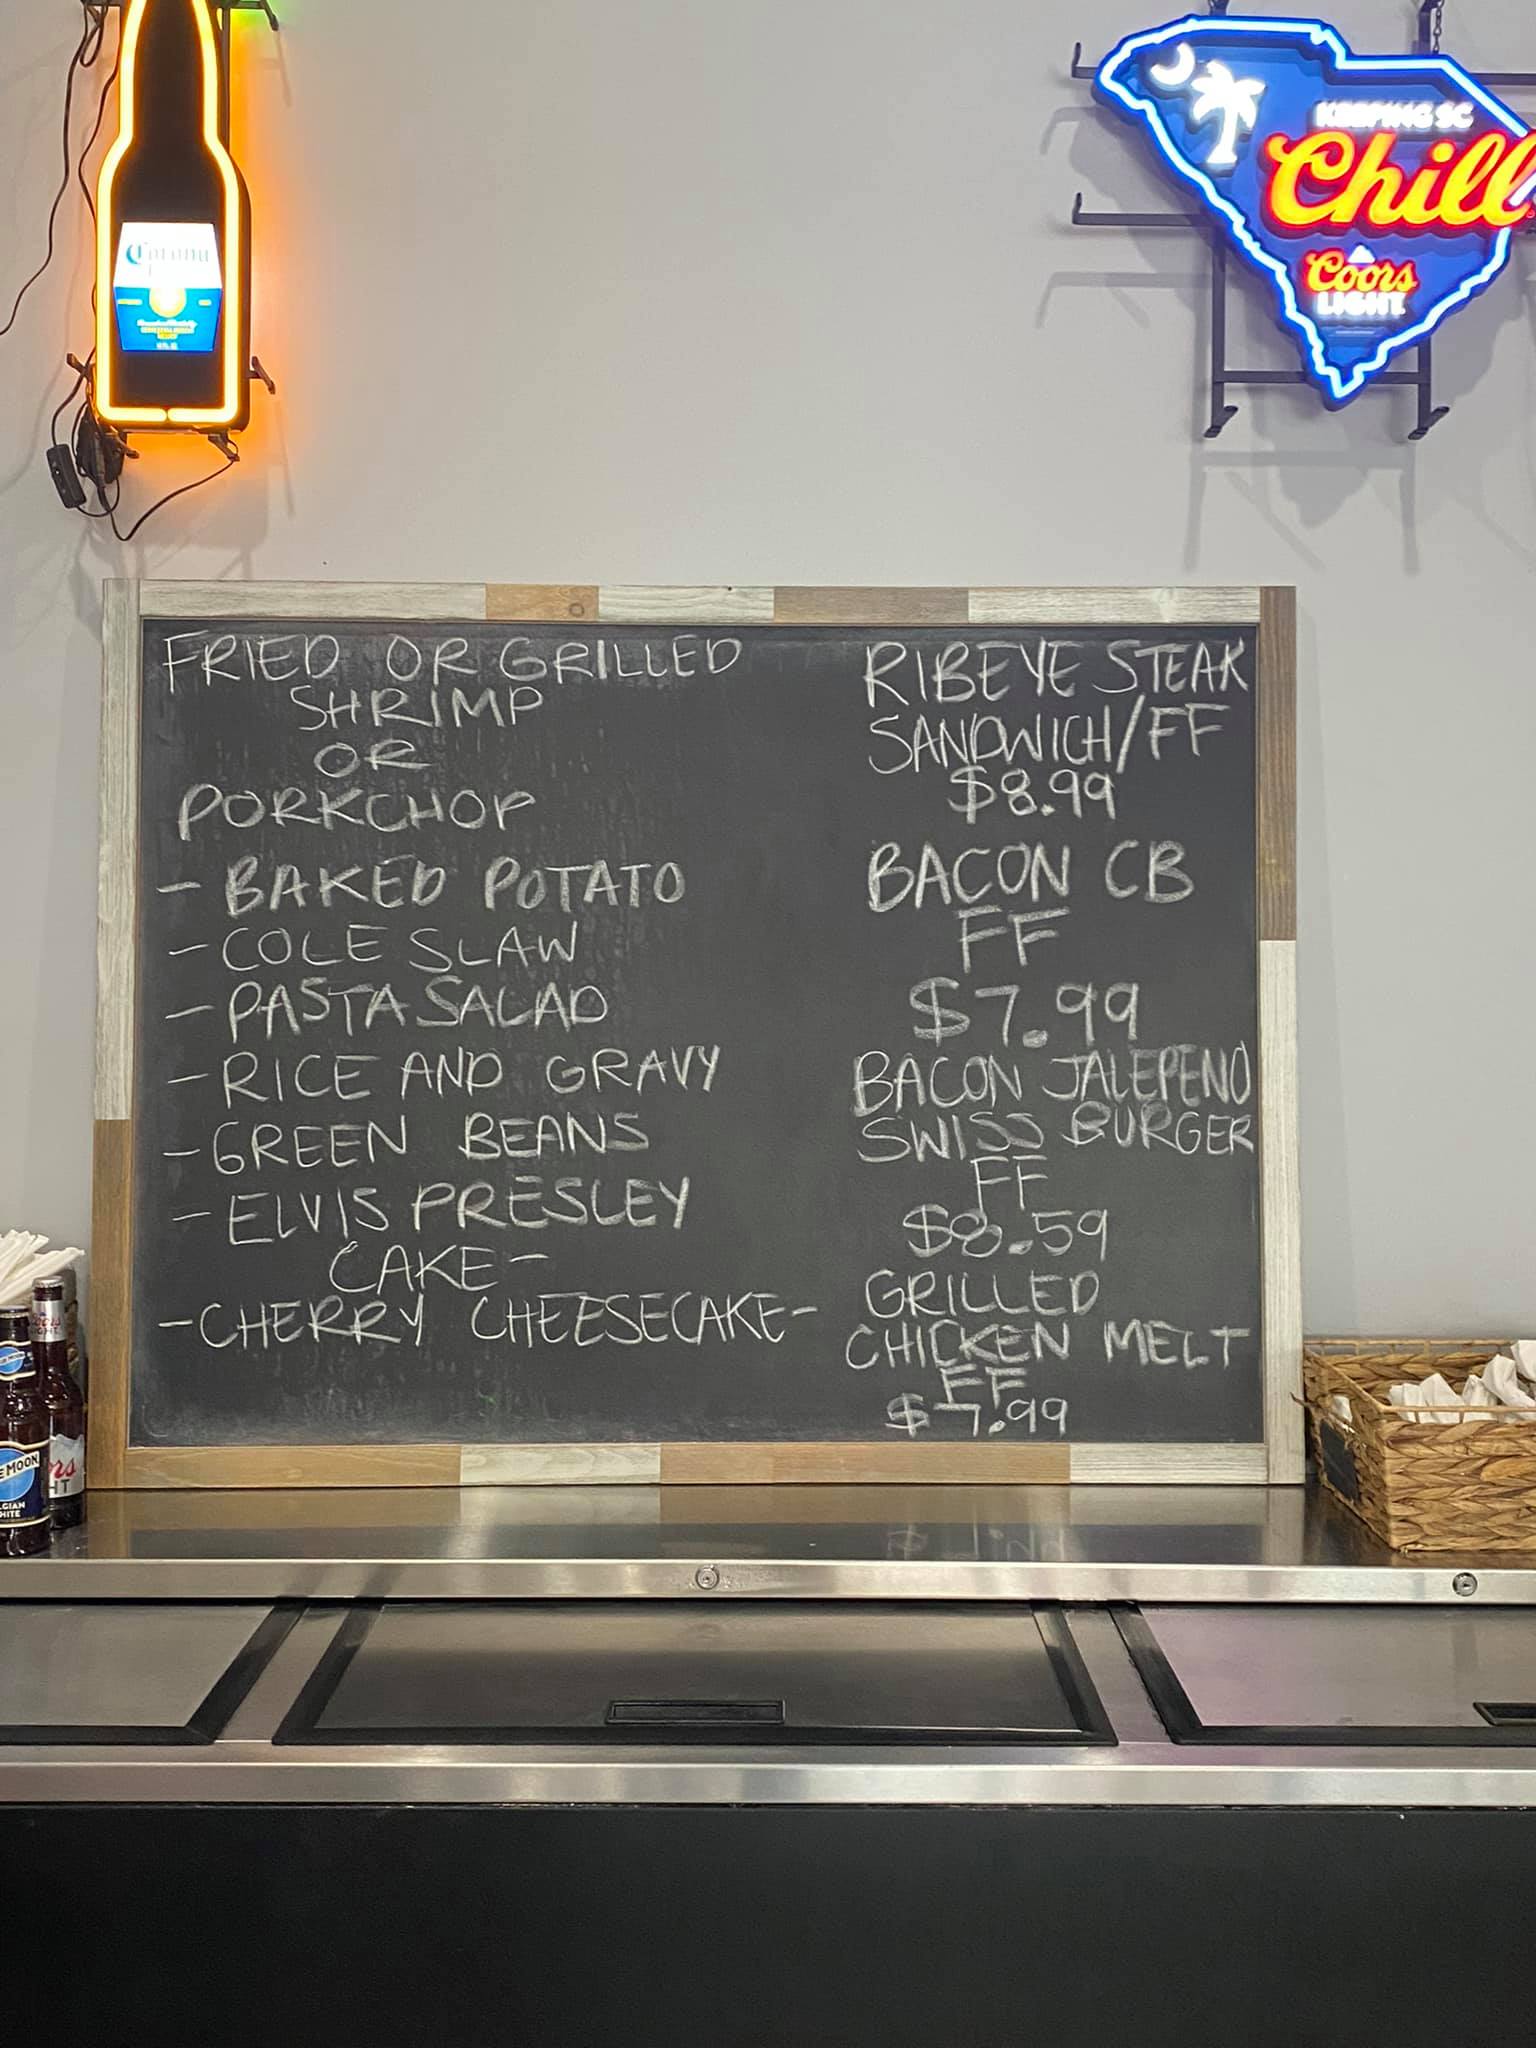 Corona
KEEPING SC
Chill
Coors
LIGHT
FRIED OR GRILLED
SHRIMP
OR
PORKCHOP
- BAKED POTATO
- COLE SLAW
- PASTA SALAD
- RICE AND GRAVY
- GREEN BEANS
- ELVIS PRESLEY
CAKE -
- CHERRY CHEESECAKE -
RIBEYE STEAK
SANDWICH/FF
$8.99
BACON CB
FF
$7.99
BACON JALEPENO
SWISS BURGER
FF
$8.59
GRILLED
CHICKEN MELT
FF
$7.99
LIGHT
E MOON
LGIAN
HITE
rs
HT